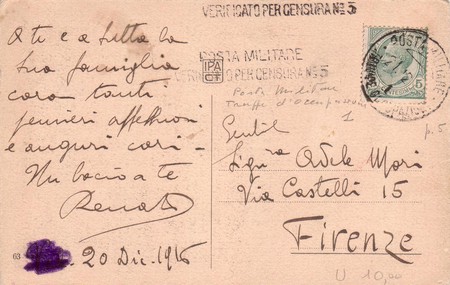 VERIFICATO PER CENSURA Nº 5
POSTA MILITARE
VERIFICATO PER CENSURA Nº 5
IPA
CT
POSTA MILITARE
A te e a tutta la
tua famiglia
cara tanti
pensieri affettuosi
e auguri cari -
Un bacio a te
Renato
20 Dic. 1916
Posta Militare
Truppe d'Occupazione
1
p. 5
Gentil
Sig.na Adele Mori
Via Castelli 15
Firenze
U 10,00
63